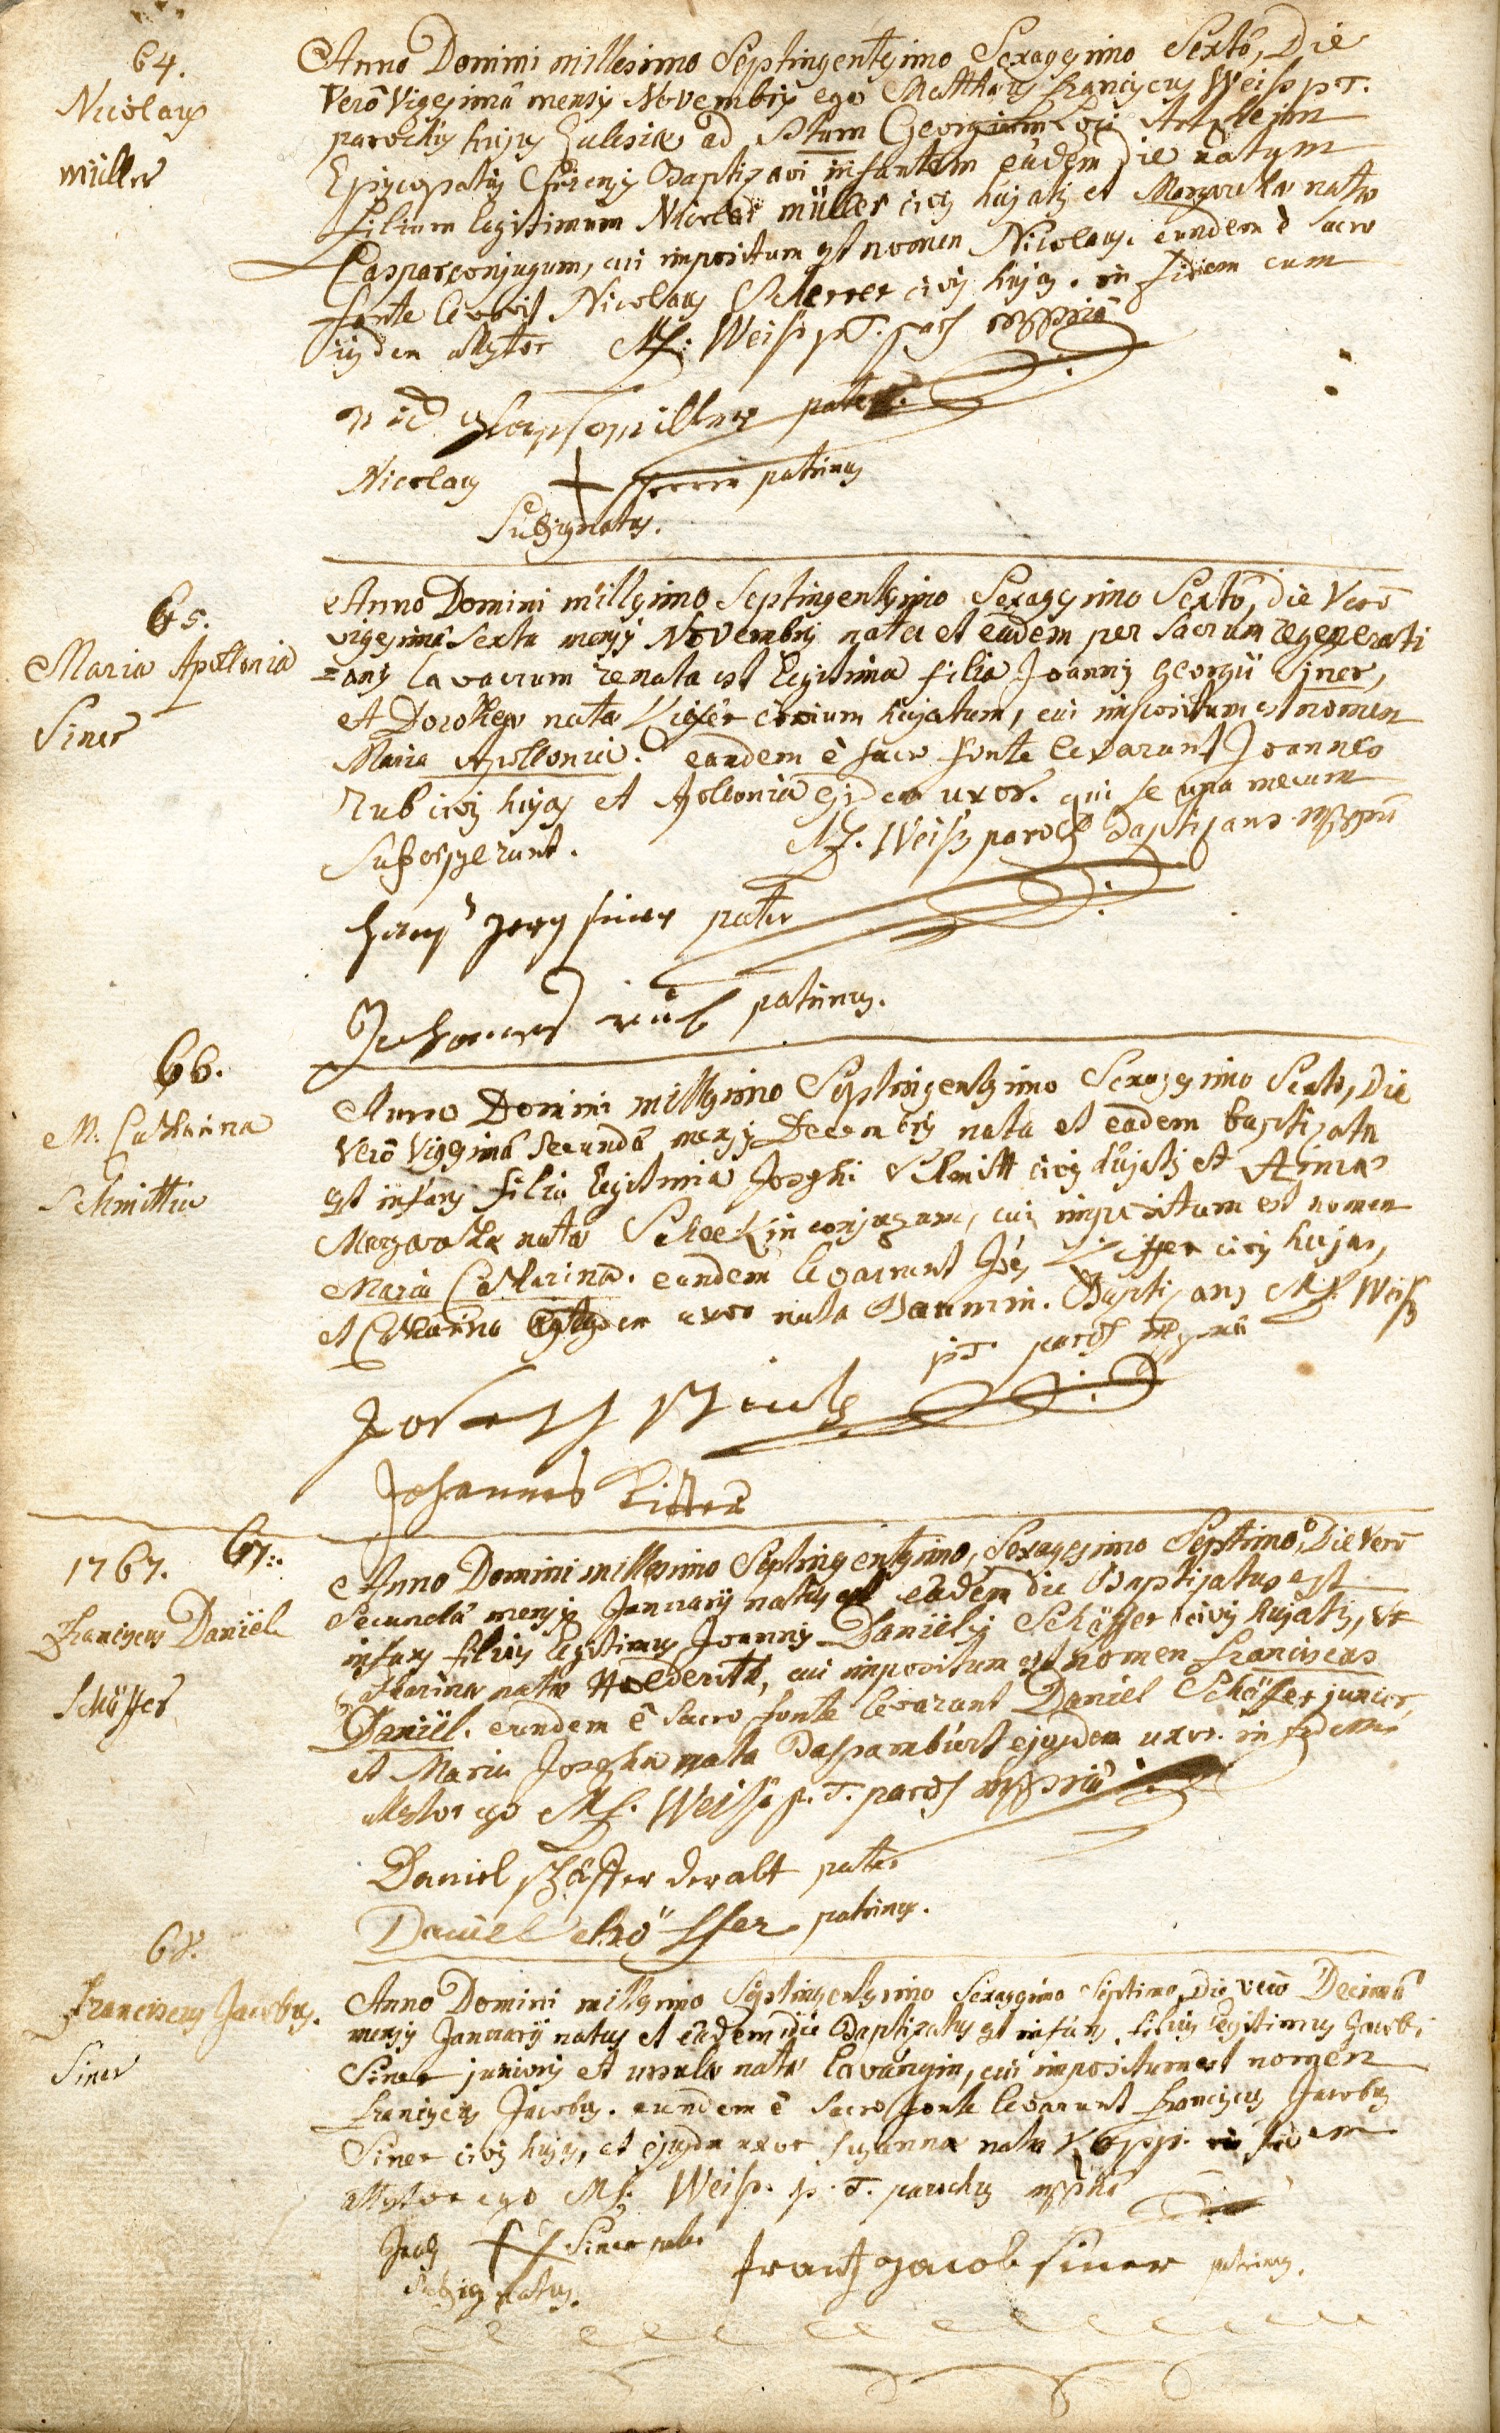 64.
Nicolaus
müller
Anno Domini millesimo Septingentesimo Sexagesimo Sexto, Die
Verò Vigesimâ mensis Novembris ego Matthæus Franciscus Weiss p.T.
parochus hujus Ecclesiæ ad Stum Georgium
Episcopatus Baptizavi infantem eâdem die natum
filium legitimum Nicolai müller civis hujatis et Margaretha nata
Caspar conjugum, cui impositum est nomen Nicolaus. eundem è sacro
fonte levavit Nicolaus Scherrer civis hujas. in fidem cum
iisdem attestor M.f. Weiss p.T. paroch mppriâ
müller pater.
Nicolaus + patrinus
Subsignatus.
65.
Maria Apollonia
Siner
Anno Domini millesimo Septingentesimo Sexagesimo Sexto, die Verò
vigesimâ Sexta mensis Novembris nata et eâdem per Sacrum regenerati
=onis lavacrum renata est legitima filia Joannis Georgii Siner,
et Dorotheæ nata Kieffer civium hujatum, cui impositum est nomen
Maria Apollonia. eandem è sacro fonte levarunt Joannes
Rub civis hujas et Apollonia ejusdem uxor. qui se una mecum
Subscripserunt. M.f. Weiss paroch Baptizans mppriâ
Hans Jerg siner pater
Johannes rub patrinus.
66.
M. Catharina
Schmittin
Anno Domini millesimo Septingentesimo Sexagesimo Sexto, Die
Verò Vigesimâ Secundâ mensis Decembris nata et eâdem baptizata
est infans filia legitima Josephi Schmitt civis hujatis et Annæ
Margaretha nata Scheckin conjugum, cui impositum est nomen
Maria Catharina. eandem levarunt Joës Kieffer civis hujas,
et Catharina ejusdem uxor nata Baumin. Baptizans M.f. Weiss
p.T. paroch mppriâ
Joseph
Johannes
1767. 67.
Franciscus Daniel
Schäffer
Anno Domini millesimo Septingentesimo, Sexagesimo Septimo, Die Verò
Secundâ mensis Januarij natus et eâdem die Baptizatus est
infans filius legitimus Joannis Danielis Schäffer civis hujatis, et
Catharina nata Holderith, cui impositum est nomen Franciscus
Daniel. eundem è Sacro fonte levarunt Daniel Schäffer junior,
et Maria Josepha nata ejusdem uxor. in fidem
attestor ego M.f. Weiss p.T. paroch mppriâ
Daniel schäffer der alt pater
Daniel schöffer patrinus.
68.
Franciscus Jacobus.
Siner
Anno Domini millesimo Septingentesimo Sexagesimo Septimo, die verò Decimâ
mensis Januarij natus et eâdem die Baptizatus est infans, filius legitimus Jacobi
Siner junioris et ursula nata Lavangin, cui impositum est nomen
Franciscus Jacobus. eundem è Sacro fonte levarunt Franciscus Jacobus
Siner civis hujas, et ejusdem uxor Susanna nata in fidem
attestor ego M.f. Weiss. p.T. parochus mppriâ
Jacob Siner pater
Subsignatus.
frantz jacob siner patrinus.